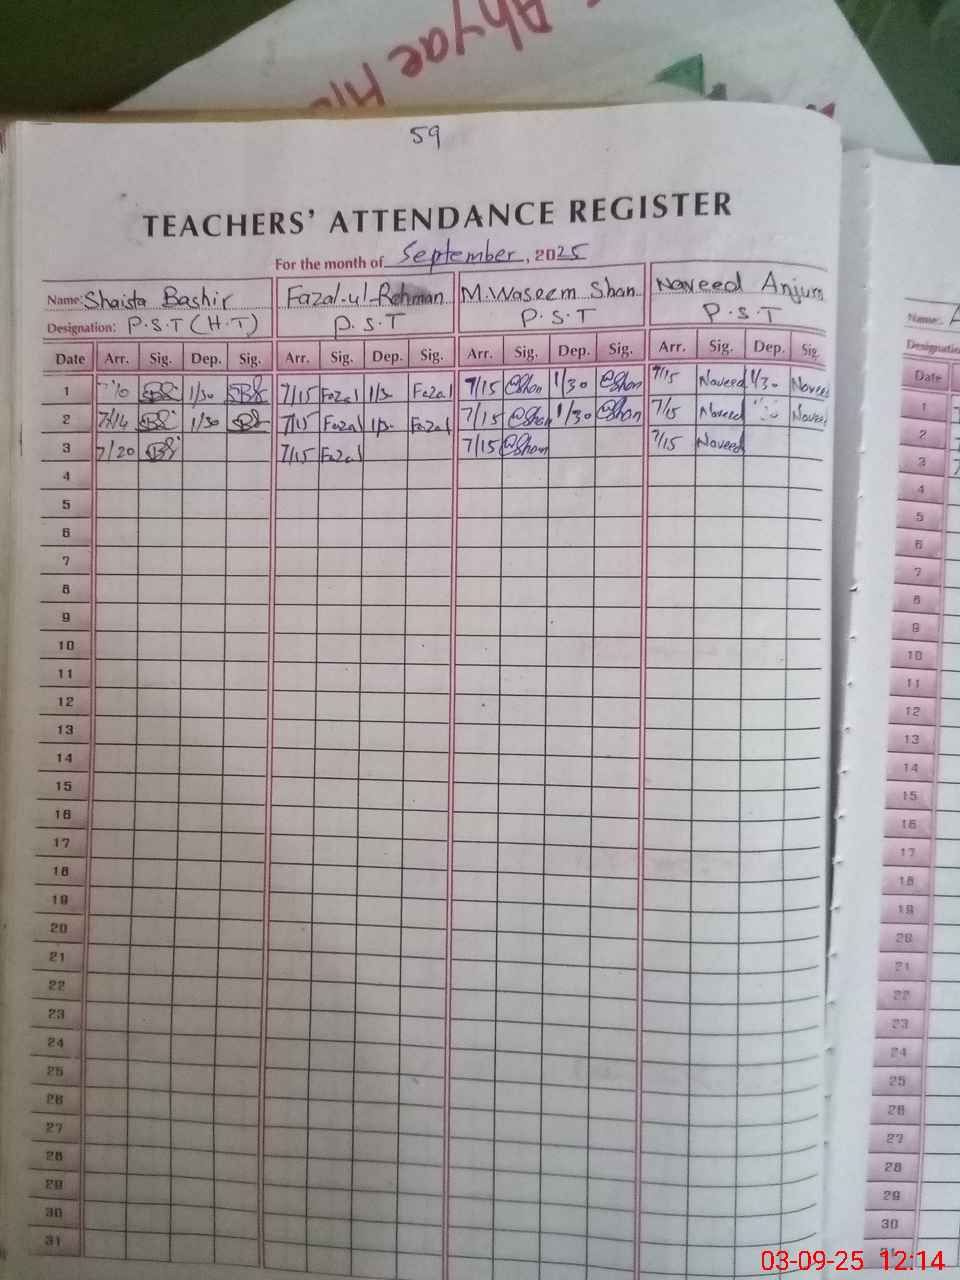 59
TEACHERS' ATTENDANCE REGISTER
For the month of September, 2025
Name: Shaista Bashir Fazal-ul-Rehman M. Waseem Shan Naveed Anjum
Designation: P.S.T (H.T) P.S.T P.S.T P.S.T
Date Arr. Sig. Dep. Sig. Arr. Sig. Dep. Sig. Arr. Sig. Dep. Sig. Arr. Sig. Dep. Sig.
1 1/30 7/15 Fazal 1/30 Fazal 7/15 Shan 1/30 Shan 7/15 Naveed 1/30 Naveed
2 7/14 1/30 7/15 Fazal 1/30 Fazal 7/15 Shan 1/30 Shan 7/15 Naveed Naveed
3 7/20 7/15 Fazal 7/15 Shan 7/15 Naveed
4
5
6
7
8
9
10
11
12
13
14
15
16
17
18
19
20
21
22
23
24
25
26
27
28
29
30
31
Name:
Date
1
2
3
4
5
6
7
8
9
10
11
12
13
14
15
16
17
18
19
20
21
22
23
24
25
26
27
28
29
30
03-09-25 12:14